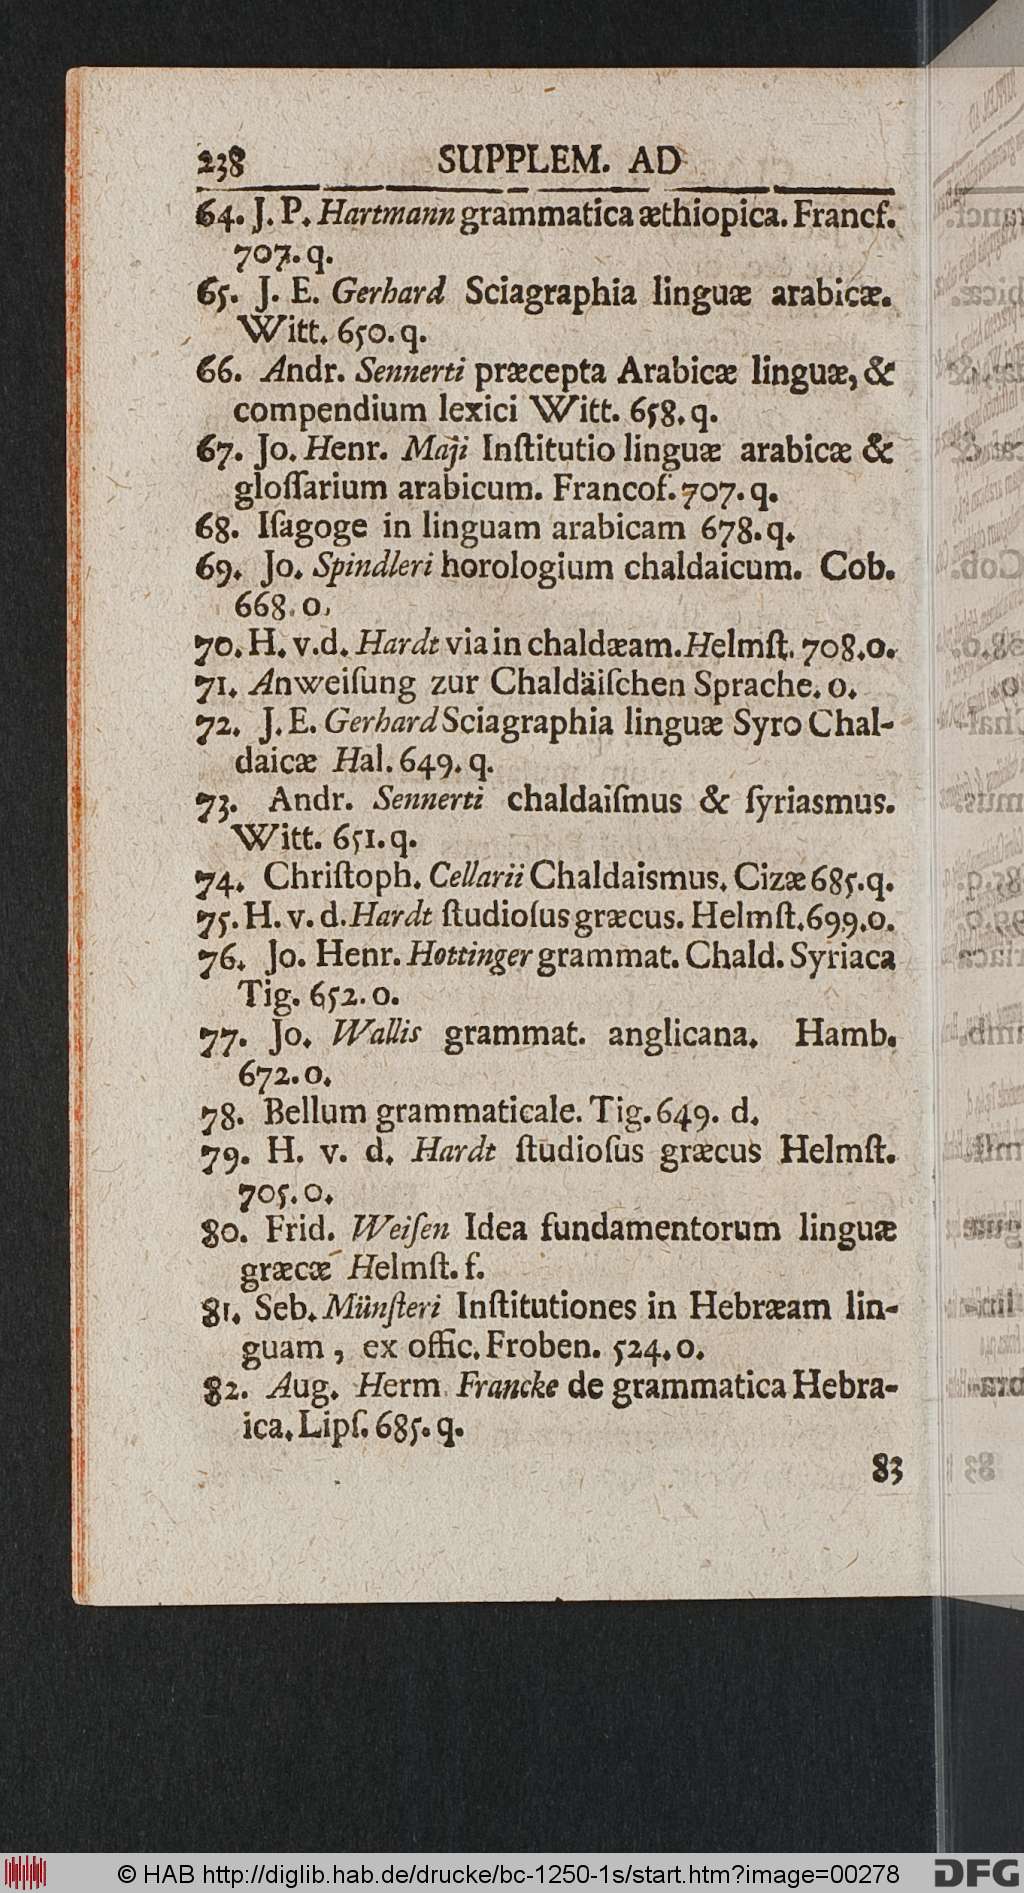 238 SUPPLEM. AD
64. J. P. Hartmann grammatica æthiopica. Francf.
707. q.
65. J. E. Gerhard Sciagraphia linguæ arabicæ.
Witt. 650. q.
66. Andr. Sennerti præcepta Arabicæ linguæ, &
compendium lexici Witt. 658. q.
67. Jo. Henr. Maji Inſtitutio linguæ arabicæ &
gloſſarium arabicum. Francof. 707. q.
68. Iſagoge in linguam arabicam 678. q.
69. Jo. Spindleri horologium chaldaicum. Cob.
668. o.
70. H. v. d. Hardt via in chaldæam. Helmſt. 708. o.
71. Anweiſung zur Chaldäiſchen Sprache. o.
72. J. E. Gerhard Sciagraphia linguæ Syro Chal-
daicæ Hal. 649. q.
73. Andr. Sennerti chaldaiſmus & ſyriasmus.
Witt. 651. q.
74. Chriſtoph. Cellarii Chaldaismus. Cizæ 685. q.
75. H. v. d. Hardt ſtudioſus græcus. Helmſt. 699. o.
76. Jo. Henr. Hottinger grammat. Chald. Syriaca
Tig. 652. o.
77. Jo. Wallis grammat. anglicana. Hamb.
672. o.
78. Bellum grammaticale. Tig. 649. d.
79. H. v. d. Hardt ſtudioſus græcus Helmſt.
705. o.
80. Frid. Weiſen Idea fundamentorum linguæ
græcæ Helmſt. f.
81. Seb. Münſteri Inſtitutiones in Hebræam lin-
guam, ex offic. Froben. 524. o.
82. Aug. Herm. Francke de grammatica Hebra-
ica. Lipſ. 685. q.
83
© HAB http://diglib.hab.de/drucke/bc-1250-1s/start.htm?image=00278
DFG